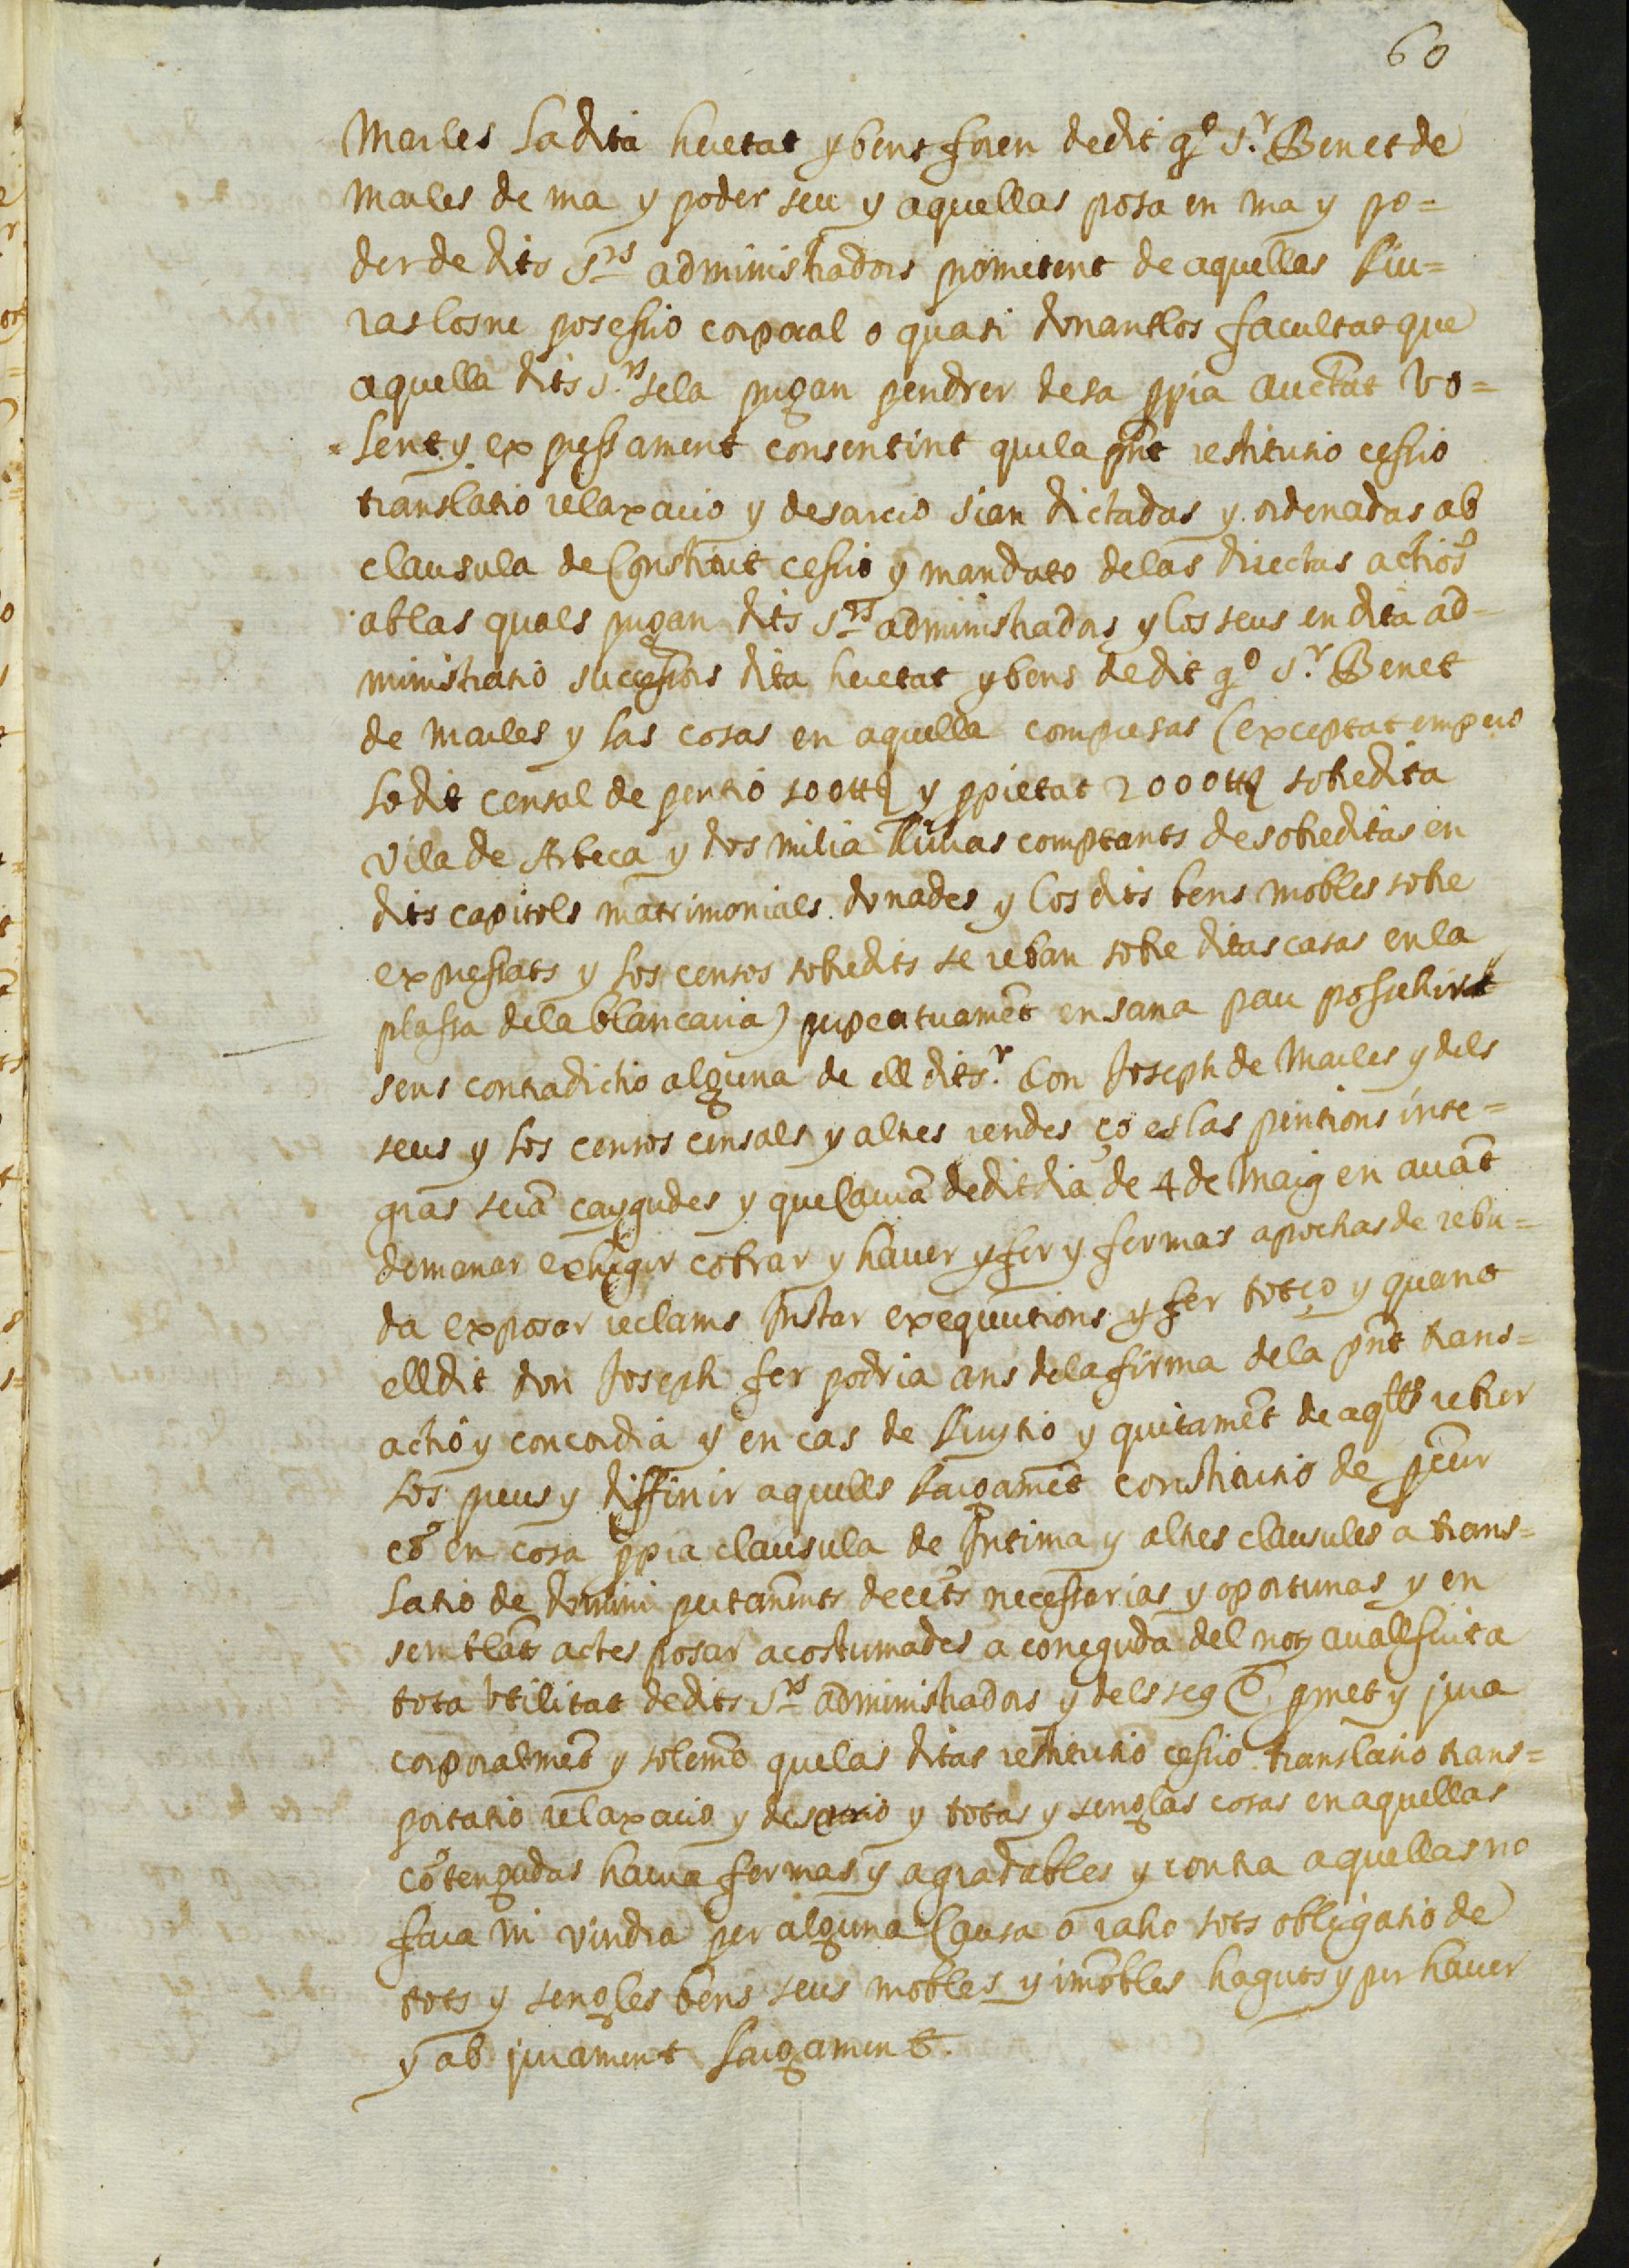 60
Marles la dita heretat y bens foren de dit qº Sr. Benet de
Marles de ma y poder seu y aquellas posa en ma y po=
der de dits Srs administradors prometent de aquellas lliu=
rarlosne posessio corporal o quasi donantlos facultat que
aquella dits Srs se la pugan pendrer de sa ppia auctat vo=
lent y expressament consentint que la pnt restitutio cessio
translatio relaxacio y desarcio sian dictadas y ordenadas ab
clausula de Constitut cessio y mandato de las directas actios
ab las quals pugan dits Srs administradors y los seus en dita ad=
ministratio successors dita heretat y bens de dit qº Sr. Benet
de Marles y las cosas en aquella compresas (exceptat empero
lo dit censal de pentio 100 ₶ y ppietat 2000 ₶ sobre dita
vila de Arbeca y dos milia lliuras comptants desobreditas en
dits capitols matrimonials donades y los dits bens mobles sobre
expressats y los censos sobredits se reban sobre ditas casas en la
plassa de la blancaria) perpetuament en sana pau possehirt
sens contradictio alguna de ell dit Sr. Don Joseph de Marles y dels
seus y los censos censals y altres rendes ço es las pentions inte=
gras sera caygudes y que caura de dit dia de 4 de Maig en auat
demanar exhigir cobrar y hauer y fer y fermar apochas de rebu=
da exposar reclams Instar exequutions y fer tot ço y quant
ell dit don Joseph fer podria ans de la firma de la pnt trans=
actio y concordia y en cas de lluytio y quitamet de aqlls rebrer
los preus y diffinir aquells llargamet constitutio de pcur
co en cosa ppia clausula de Intima y altres clausules a trans=
latio de domini pertanents decets necessarias y oportunas y en
semblats actes posar acostumades a coneguda del not auallscrit a
tota vtilitat de dits Srs administradors y dels seg pmet y jura
corporalmet y solemt que las ditas restitutio cessio translatio trans=
portatio relaxacio y desarcio y totas y senglas cosas en aquellas
cotengudas haura fermas y agradables y contra aquellas no
fara ni vindra per alguna Causa o raho sots obligatio de
tots y sengles bens seus mobles y imobles haguts y per hauer
y ab jurament llargament.